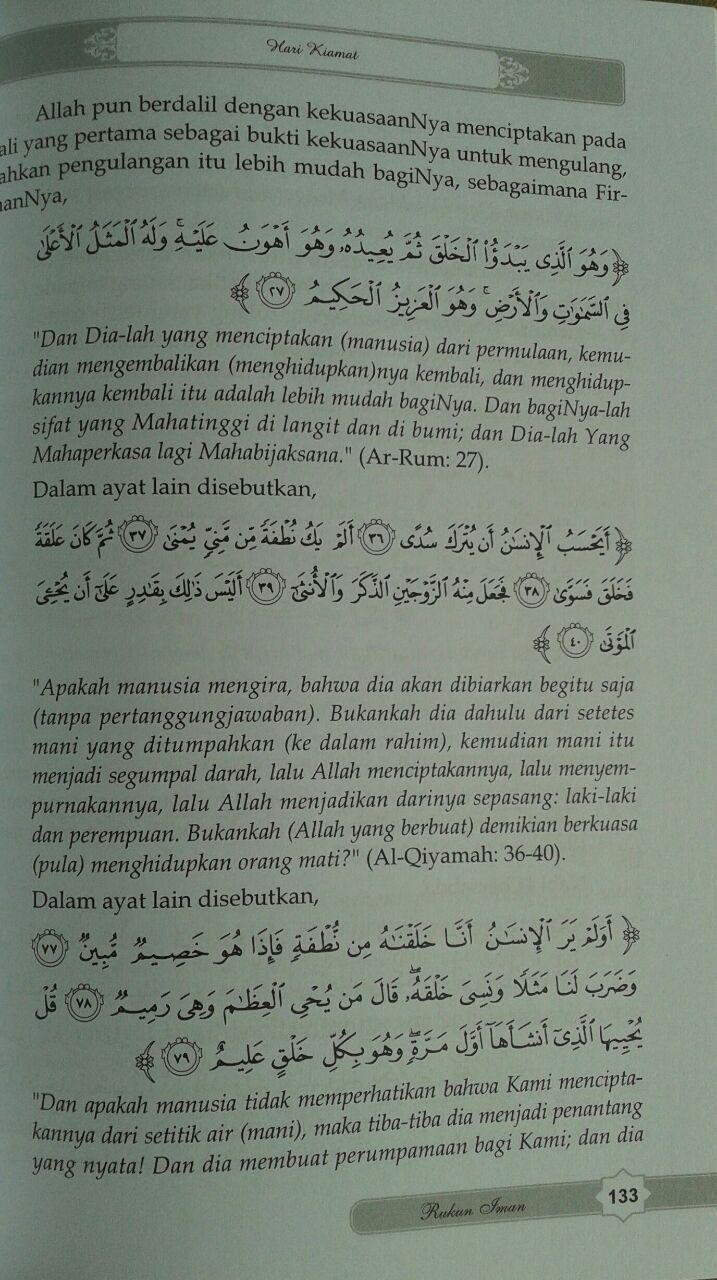 Hari Kiamat
Allah pun berdalil dengan kekuasaanNya menciptakan pada
ali yang pertama sebagai bukti kekuasaanNya untuk mengulang,
ahkan pengulangan itu lebih mudah bagiNya, sebagaimana Fir-
manNya,
﴿ وَهُوَ ٱلَّذِى يَبْدَؤُا۟ ٱلْخَلْقَ ثُمَّ يُعِيدُهُۥ وَهُوَ أَهْوَنُ عَلَيْهِ ۚ وَلَهُ ٱلْمَثَلُ ٱلْأَعْلَىٰ
فِى ٱلسَّمَٰوَٰتِ وَٱلْأَرْضِ ۚ وَهُوَ ٱلْعَزِيزُ ٱلْحَكِيمُ ٢٧ ﴾
"Dan Dia-lah yang menciptakan (manusia) dari permulaan, kemu-
dian mengembalikan (menghidupkan)nya kembali, dan menghidup-
kannya kembali itu adalah lebih mudah bagiNya. Dan bagiNya-lah
sifat yang Mahatinggi di langit dan di bumi; dan Dia-lah Yang
Mahaperkasa lagi Mahabijaksana." (Ar-Rum: 27).
Dalam ayat lain disebutkan,
﴿ أَيَحْسَبُ ٱلْإِنسَٰنُ أَن يُتْرَكَ سُدًى ٣٦ أَلَمْ يَكُ نُطْفَةً مِّن مَّنِىٍّ يُمْنَىٰ ٣٧ ثُمَّ كَانَ عَلَقَةً
فَخَلَقَ فَسَوَّىٰ ٣٨ فَجَعَلَ مِنْهُ ٱلزَّوْجَيْنِ ٱلذَّكَرَ وَٱلْأُنثَىٰٓ ٣٩ أَلَيْسَ ذَٰلِكَ بِقَٰدِرٍ عَلَىٰٓ أَن يُحْـِۧىَ
ٱلْمَوْتَىٰ ٤٠ ﴾
"Apakah manusia mengira, bahwa dia akan dibiarkan begitu saja
(tanpa pertanggungjawaban). Bukankah dia dahulu dari setetes
mani yang ditumpahkan (ke dalam rahim), kemudian mani itu
menjadi segumpal darah, lalu Allah menciptakannya, lalu menyem-
purnakannya, lalu Allah menjadikan darinya sepasang: laki-laki
dan perempuan. Bukankah (Allah yang berbuat) demikian berkuasa
(pula) menghidupkan orang mati?" (Al-Qiyamah: 36-40).
Dalam ayat lain disebutkan,
﴿ أَوَلَمْ يَرَ ٱلْإِنسَٰنُ أَنَّا خَلَقْنَٰهُ مِن نُّطْفَةٍ فَإِذَا هُوَ خَصِيمٌ مُّبِينٌ ٧٧
وَضَرَبَ لَنَا مَثَلًا وَنَسِىَ خَلْقَهُۥ ۖ قَالَ مَن يُحْىِ ٱلْعِظَٰمَ وَهِىَ رَمِيمٌ ٧٨ قُلْ
يُحْيِيهَا ٱلَّذِىٓ أَنشَأَهَآ أَوَّلَ مَرَّةٍ ۖ وَهُوَ بِكُلِّ خَلْقٍ عَلِيمٌ ٧٩ ﴾
"Dan apakah manusia tidak memperhatikan bahwa Kami mencipta-
kannya dari setitik air (mani), maka tiba-tiba dia menjadi penantang
yang nyata! Dan dia membuat perumpamaan bagi Kami; dan dia
Rukun Iman
133